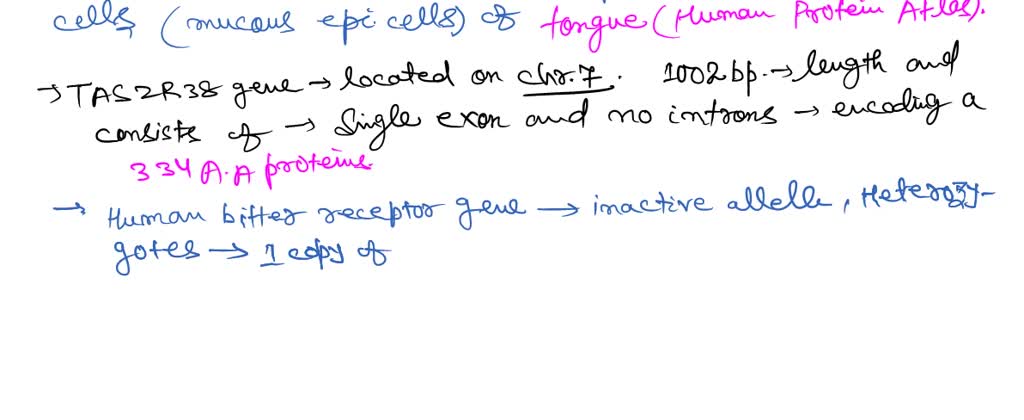 cells (mucous epi cells) of tongue (Human Protein Atlas).
→ TAS2R38 gene → located on chr.7. 1002 bp. → length and
consists of → Single exon and no introns → encoding a
334 A.A proteins.
→ Human bitter receptor gene → inactive allele, Heterozy-
gotes → 1 copy of